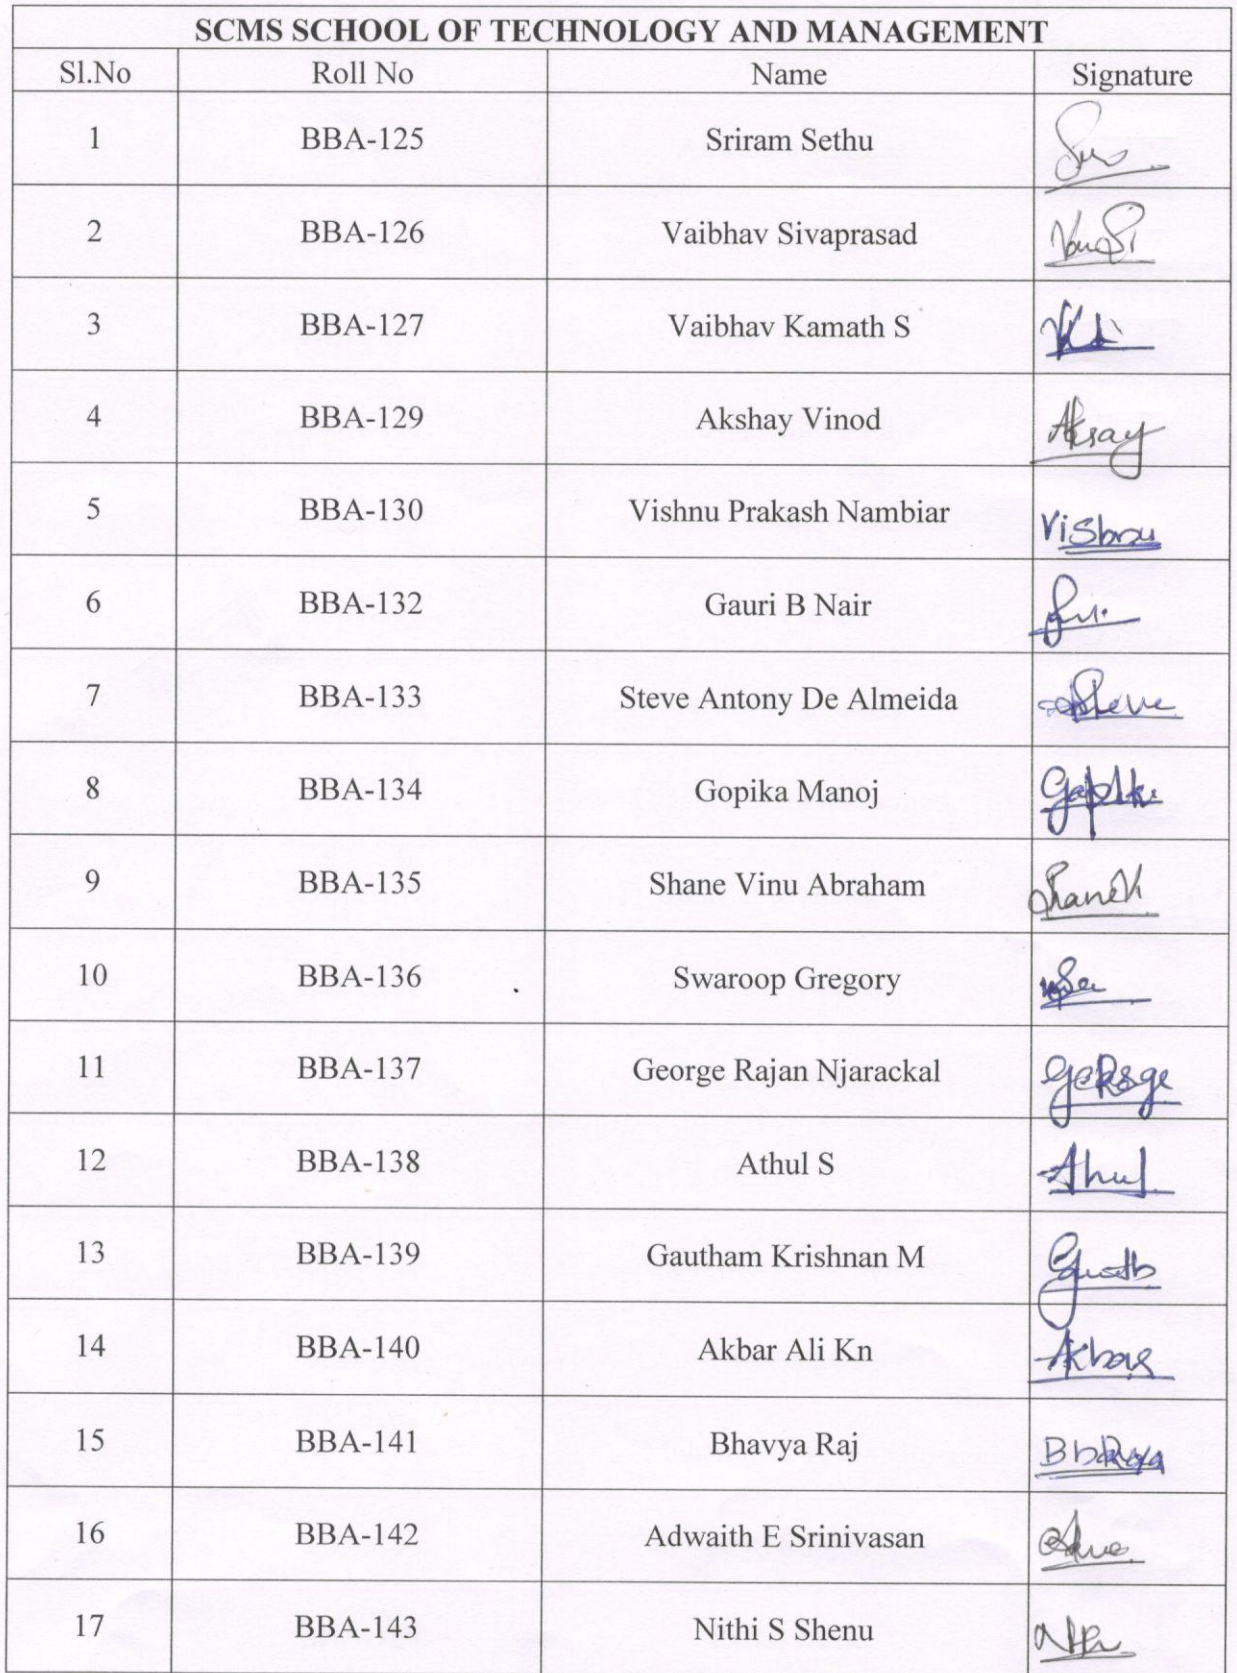 SCMS SCHOOL OF TECHNOLOGY AND MANAGEMENT
Sl.No Roll No Name Signature
1 BBA-125 Sriram Sethu
2 BBA-126 Vaibhav Sivaprasad
3 BBA-127 Vaibhav Kamath S
4 BBA-129 Akshay Vinod Aksay
5 BBA-130 Vishnu Prakash Nambiar Vishnu
6 BBA-132 Gauri B Nair
7 BBA-133 Steve Antony De Almeida Steve
8 BBA-134 Gopika Manoj Gopika
9 BBA-135 Shane Vinu Abraham
10 BBA-136 Swaroop Gregory
11 BBA-137 George Rajan Njarackal George
12 BBA-138 Athul S Athul
13 BBA-139 Gautham Krishnan M
14 BBA-140 Akbar Ali Kn Akbar
15 BBA-141 Bhavya Raj Bhavya
16 BBA-142 Adwaith E Srinivasan
17 BBA-143 Nithi S Shenu